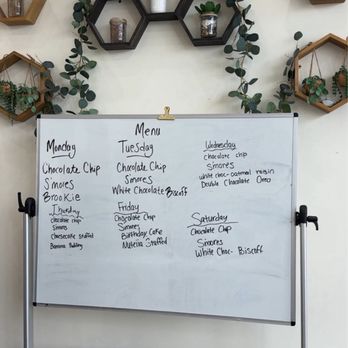 Menu
Monday
Chocolate Chip
S'mores
Brookie
Tuesday
Chocolate Chip
S'mores
White Chocolate Biscoff
Wednesday
chocolate chip
S'mores
White choc-oatmeal raisin
Double Chocolate Oreo
Thursday
chocolate chip
S'mores
Cheesecake Stuffed
Banana Pudding
Friday
Chocolate Chip
S'mores
Birthday Cake
Nutella Stuffed
Saturday
Chocolate Chip
S'mores
White Choc- Biscoff